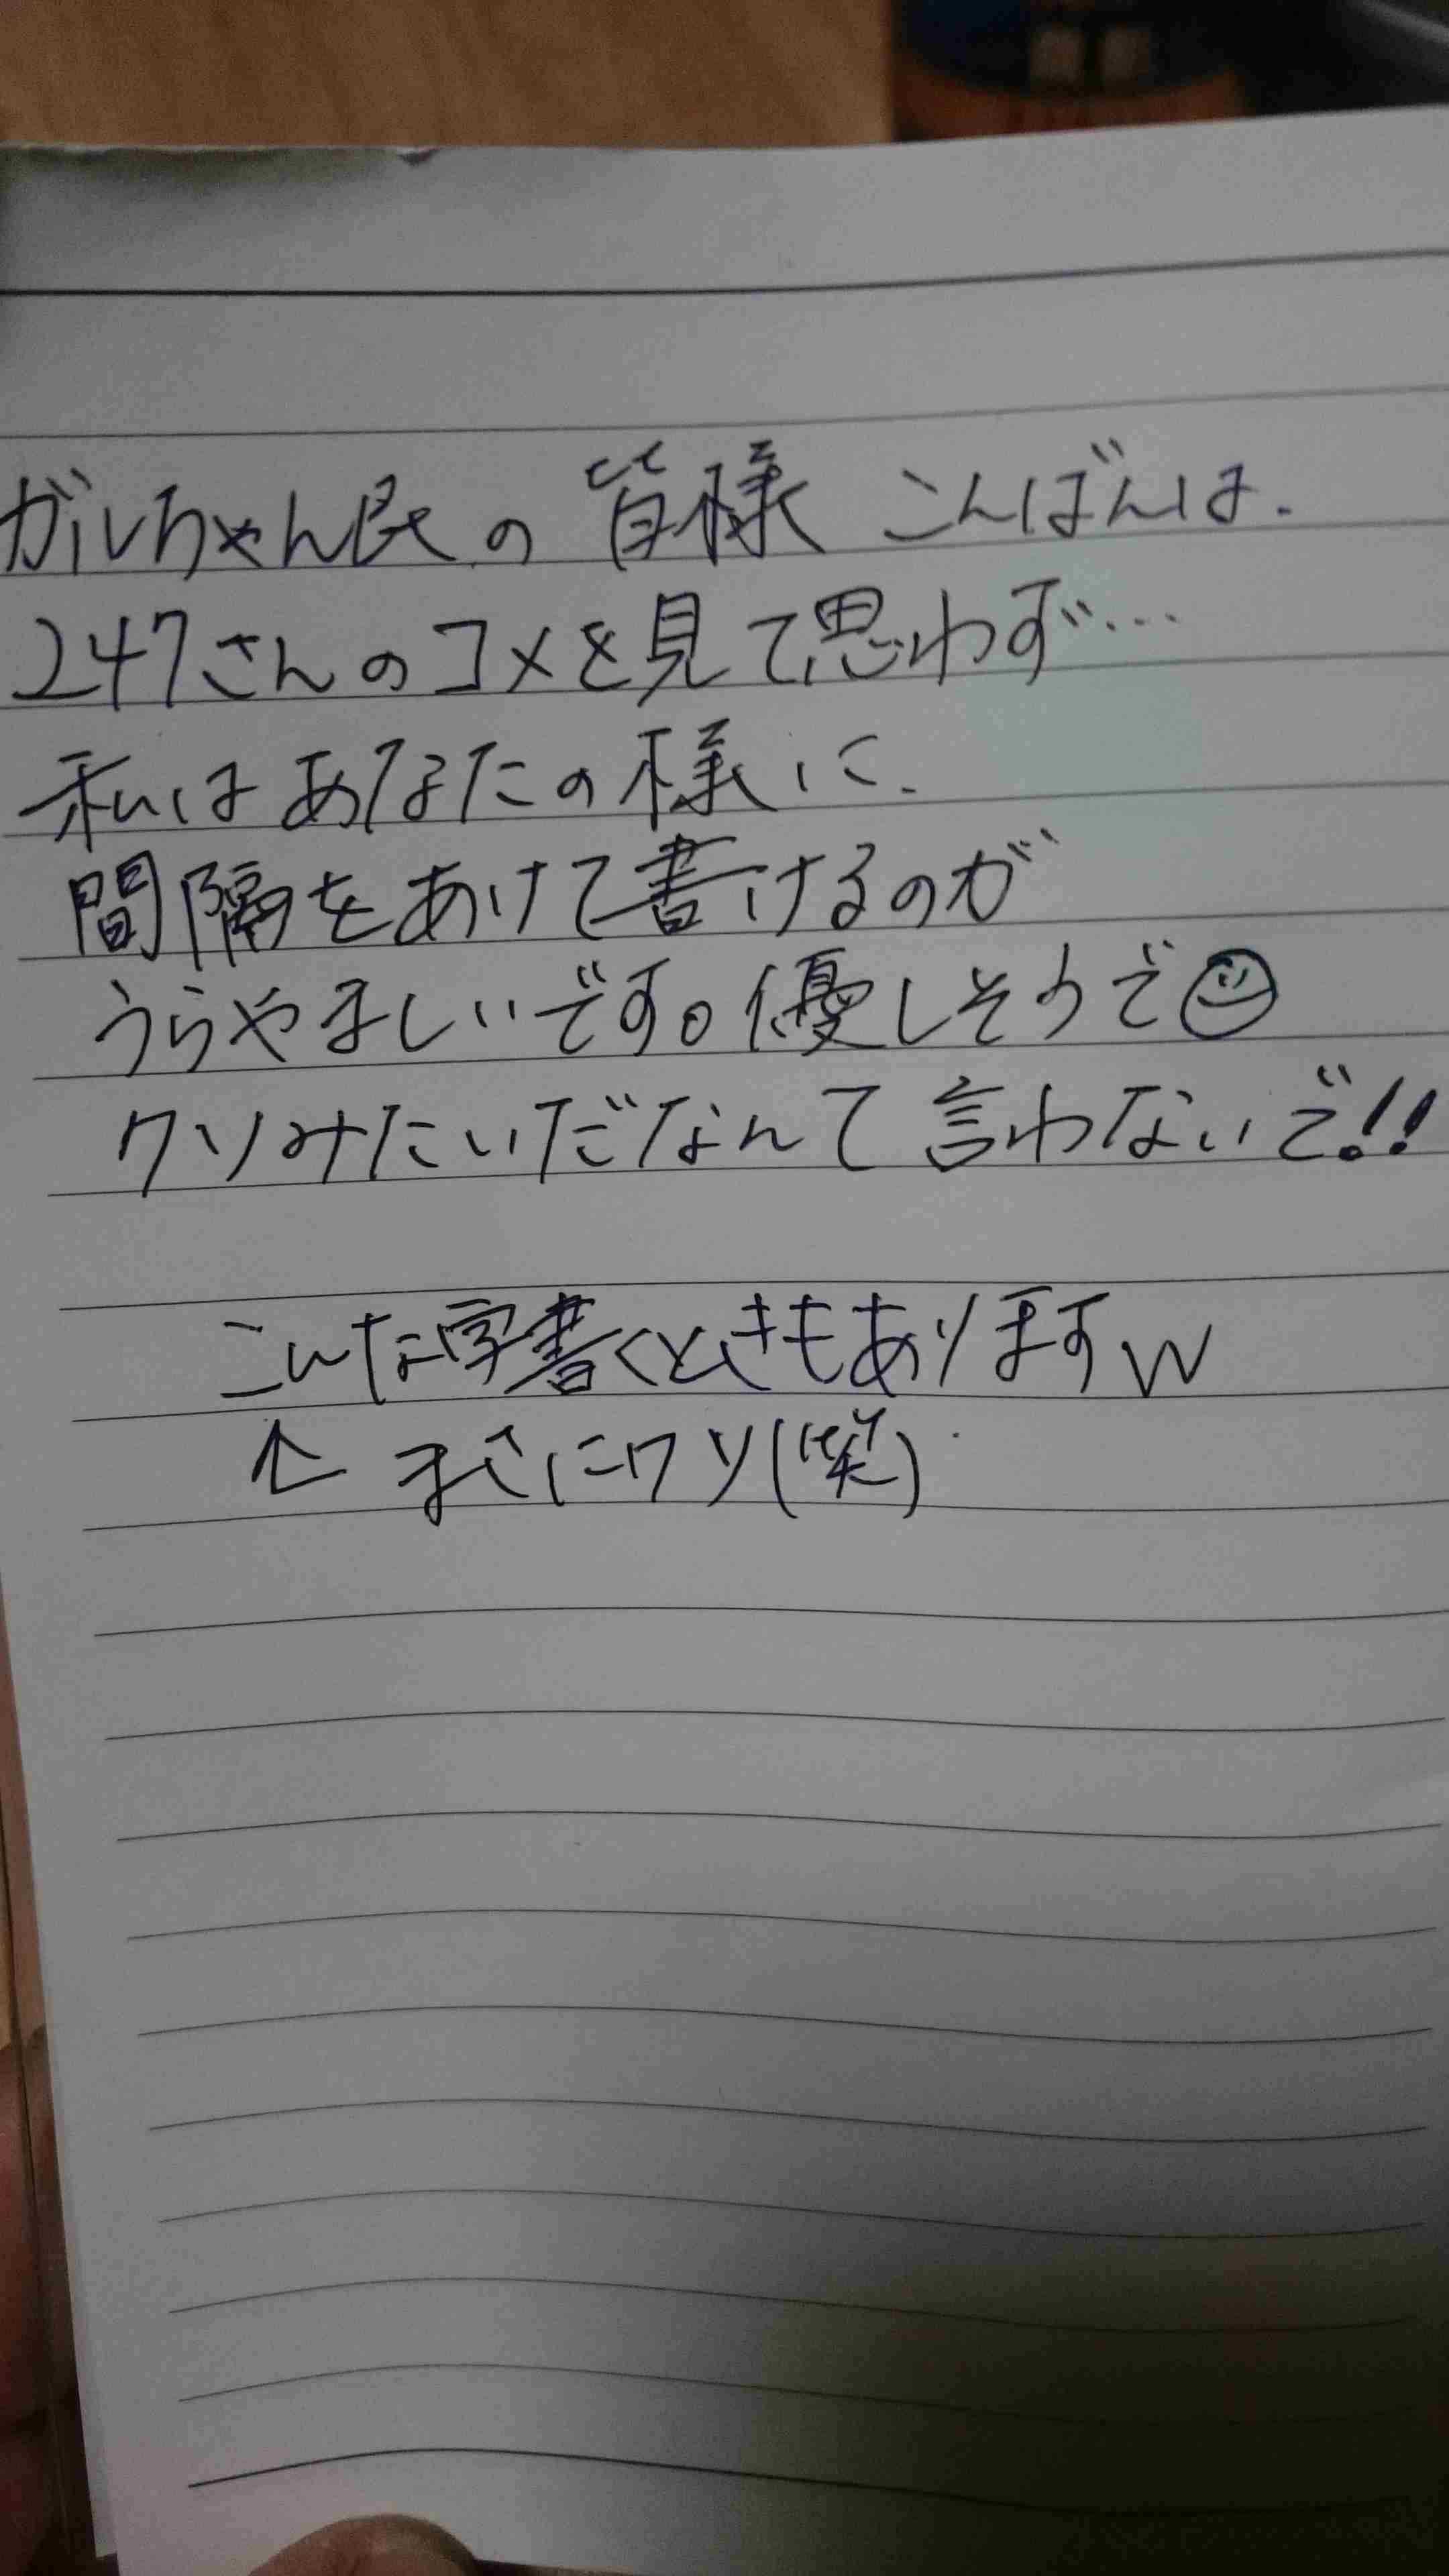 ガルちゃん民の皆様 こんばんは.
247さんのコメを見て思わず…
私はあなたの様に.
間隔をあけて書けるのが
うらやましいです。優しそうで
クソみたいだなんて言わないで!!
こんな字書くときもありますw
↑ まさにクソ(笑)